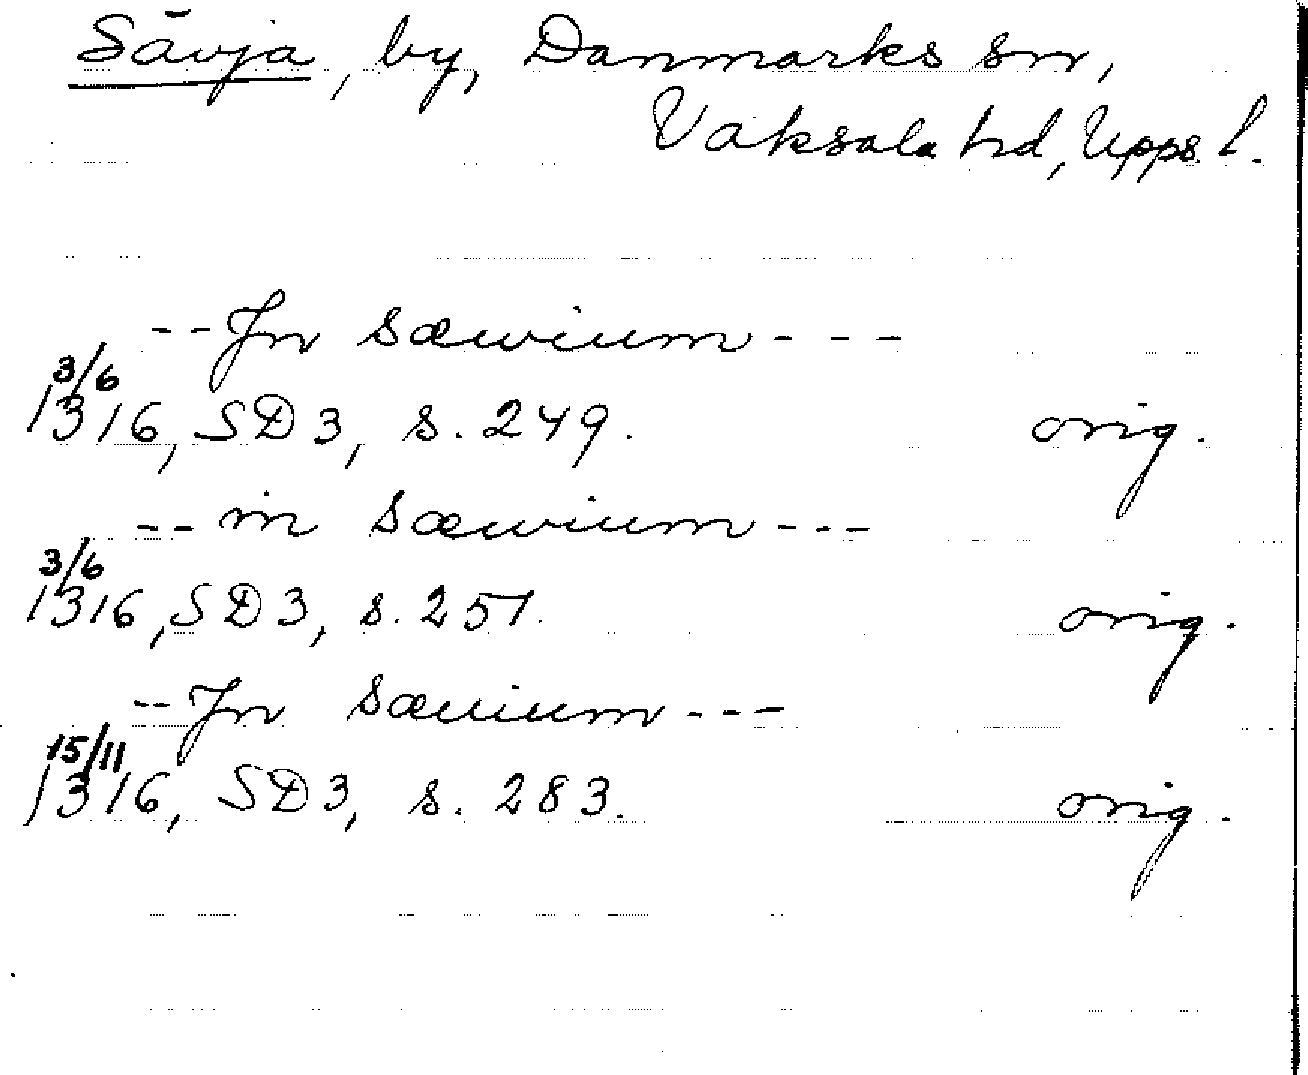 Sävja, by, Danmarks sn,
Vaksala hd, Upps. l.
-- Jn sæwium ---
3/6
1316, SD 3, s. 249. orig.
-- in sæwium ---
3/6
1316, SD 3, s. 251. orig.
-- Jn sæuium ---
15/11
1316, SD 3, s. 283. orig.